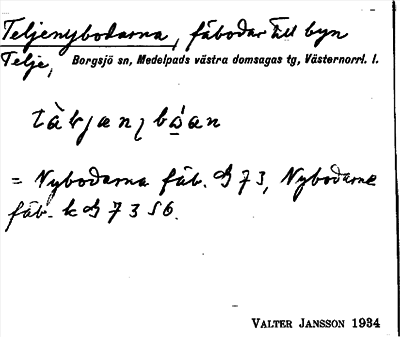 Teljenybodarna, fäbodar till byn
Telje, Borgsjö sn, Medelpads västra domsagas tg, Västernorrl. l.
= Nybodarna fäb. G 73, Nybodarne
fäb. k G 73 S6.
VALTER JANSSON 1934